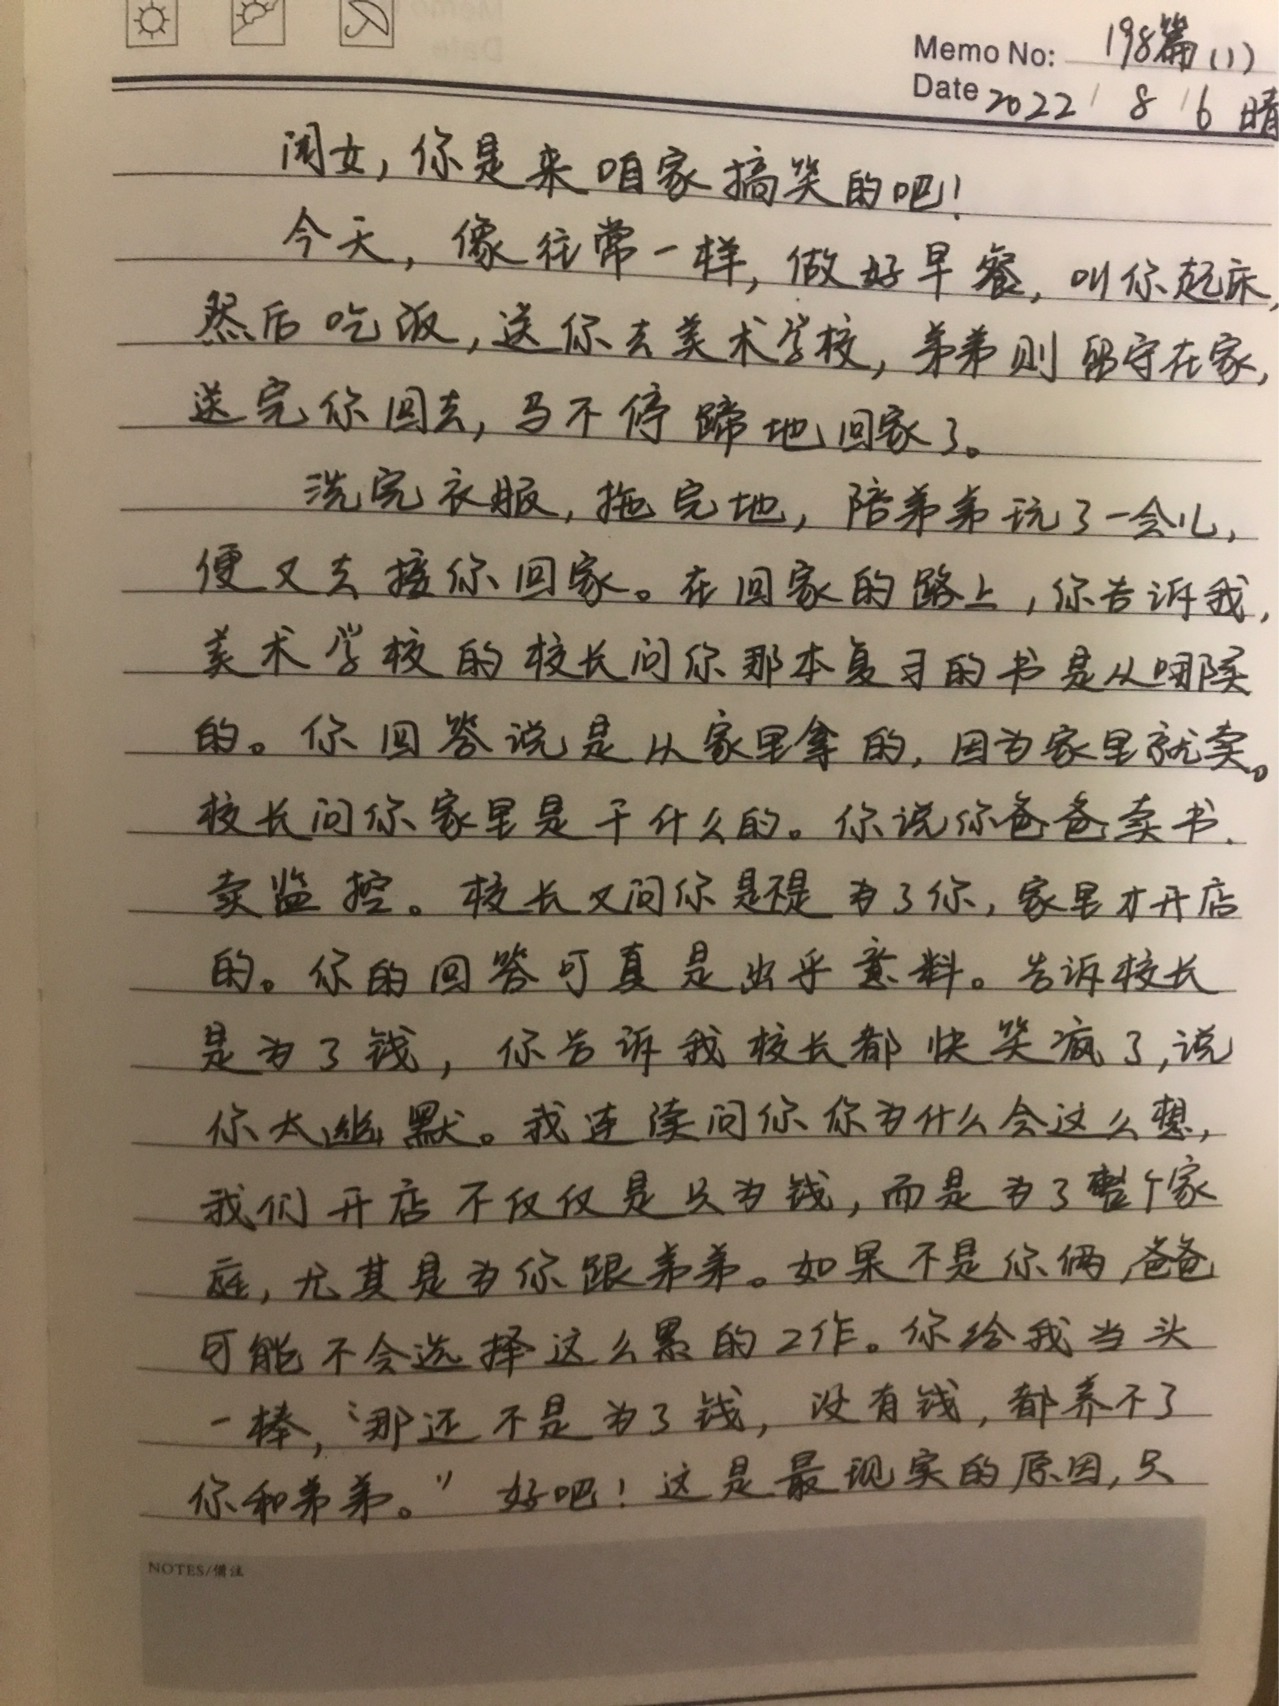 Memo No: 198篇(1)
Date 2022/8/6 晴
闺女,你是来咱家搞笑的吧!
今天,像往常一样,做好早餐,叫你起床,
然后吃饭,送你去美术学校,弟弟则留守在家,
送完你回去,马不停蹄地回家了。
洗完衣服,拖完地,陪弟弟玩了一会儿,
便又去接你回家。在回家的路上,你告诉我,
美术学校的校长问你那本复习的书是从哪买
的。你回答说是从家里拿的,因为家里就卖。
校长问你家里是干什么的。你说你爸爸卖书、
卖监控。校长又问你是不是为了你,家里才开店
的。你的回答可真是出乎意料。告诉校长
是为了钱,你告诉我校长都快笑疯了,说
你太幽默。我连续问你你为什么会这么想,
我们开店不仅仅是只为钱,而是为了整个家
庭,尤其是为你跟弟弟。如果不是你俩,爸爸
可能不会选择这么累的工作。你给我当头
一棒,“那还不是为了钱,没有钱,都养不了
你和弟弟。”好吧!这是最现实的原因,只
NOTES/备注